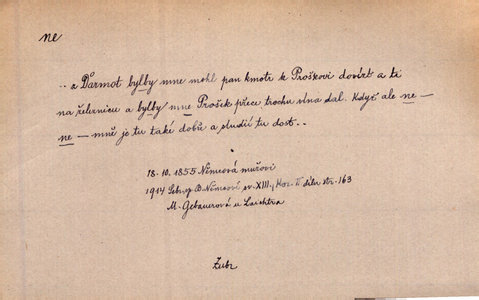 ne
.. z Ďarmot bylby mne mohl pan kmotr k Proškovi dovízt a ti
na železnicu a bylby mne Prošek přece trochu vína dal. Když ale ne —
ne — mně je tu také dobů a studií tu dost..
18. 10. 1855 Němcová mužovi
1914 Sebr. sp. B. Němcové sv. XIII., Kor. II. dílu str. 163
M. Gebauerová u Laichtra
Zubr